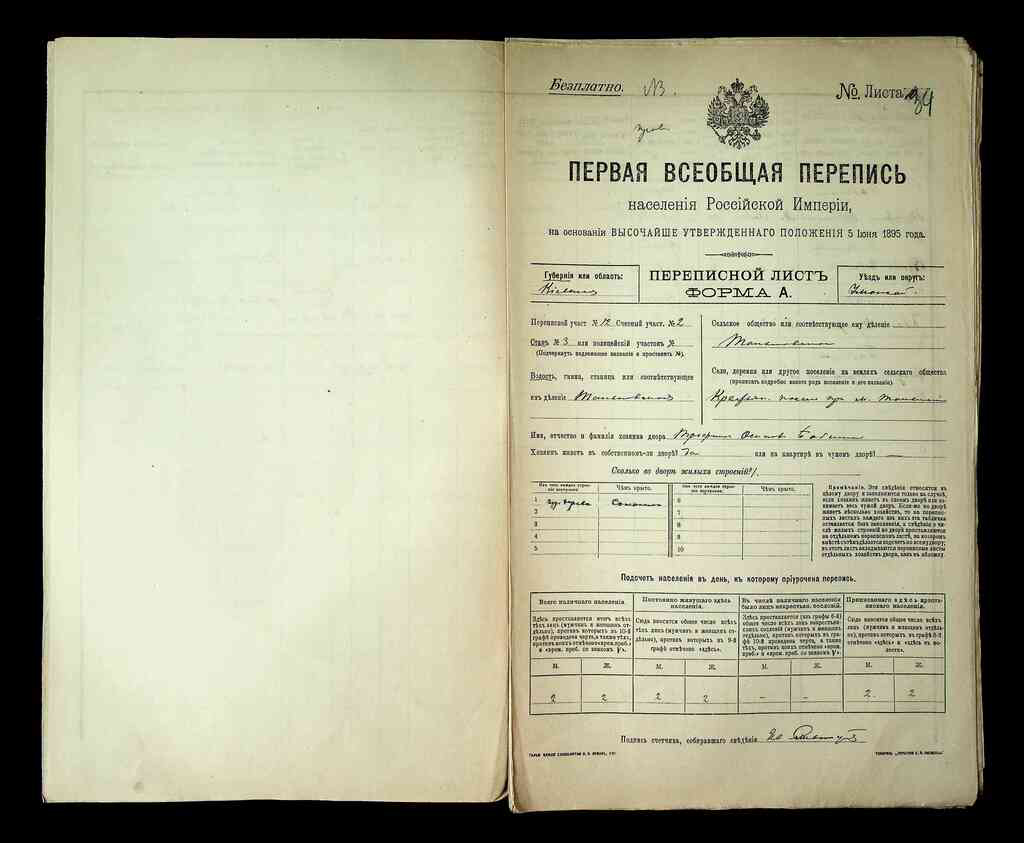 Безплатно.
№ Листа 34
ПЕРВАЯ ВСЕОБЩАЯ ПЕРЕПИСЬ
населенія Россійской Имперіи,
на основаніи ВЫСОЧАЙШЕ УТВЕРЖДЕННАГО ПОЛОЖЕНІЯ 5 Іюня 1895 года.
Губернія или область:
Кіевская
ПЕРЕПИСНОЙ ЛИСТЪ
ФОРМА А.
Уѣздъ или округъ:
Уманскій
Переписной участ. № 12 Счетный участ. № 2
Станъ № 3 или полицейскій участокъ №
(Подчеркнуть надлежащее названіе и проставить №).
Волость, гмина, станица или соотвѣтствующее
имъ дѣленіе
Сельское общество или соотвѣтствующее ему дѣленіе
Село, деревня или другое поселеніе на земляхъ сельскаго общества
(прописать подробно какого рода поселеніе и его названіе).
Имя, отчество и фамилія хозяина двора
Хозяинъ живетъ въ собственномъ-ли дворѣ? да или на квартирѣ въ чужомъ дворѣ? —
Сколько во дворѣ жилыхъ строеній?
Изъ чего каждое строеніе выстроено.
Чѣмъ крыто.
Изъ чего каждое строеніе выстроено.
Чѣмъ крыто.
1 Соломою 6
2 7
3 8
4 9
5 10
Примѣчаніе. Эти свѣдѣнія относятся къ
цѣлому двору и заполняются только въ случаѣ,
если хозяинъ живетъ въ своемъ дворѣ или занимаетъ весь чужой дворъ. Если-же во дворѣ
живетъ нѣсколько хозяйствъ, то на переписныхъ листахъ каждаго изъ нихъ эта табличка
оставляется безъ заполненія, а свѣдѣнія о числѣ жилыхъ строеній во дворѣ проставляются
на отдѣльномъ переписномъ листѣ, на которомъ
вмѣстѣ съ тѣмъ дѣлается подсчетъ по всему двору;
въ этотъ листъ вкладываются переписные листы
отдѣльныхъ хозяйствъ двора, какъ въ обложку.
Подсчетъ населенія въ день, къ которому пріурочена перепись.
Всего наличнаго населенія.
Постоянно живущаго здѣсь населенія.
Въ числѣ наличнаго населенія было лицъ некрестьян. сословій.
Приписаннаго здѣсь крестьянскаго населенія.
Здѣсь проставляется итогъ всѣхъ
тѣхъ лицъ (мужчинъ и женщинъ отдѣльно), противъ которыхъ въ 10-й
графѣ проведена черта, а также тѣхъ,
противъ коихъ отмѣчено «врем. преб.»
и «врем. преб. со знакомъ V».
Сюда вносится общее число всѣхъ
тѣхъ лицъ (мужчинъ и женщинъ отдѣльно), противъ которыхъ въ 9-й
графѣ отмѣчено «здѣсь».
Здѣсь проставляется (изъ графы 6-й)
общее число всѣхъ лицъ некрестьянскихъ сословій (мужчинъ и женщинъ
отдѣльно), противъ которыхъ въ
графѣ 10-й проведена черта, а также
тѣхъ, противъ коихъ отмѣчено «врем.
преб.» и «врем. преб. со знакомъ V».
Сюда вносится общее число всѣхъ
лицъ (мужчинъ и женщинъ отдѣльно), противъ которыхъ въ графѣ 8-й
отмѣчено «здѣсь» и «здѣсь въ волости».
М. Ж. М. Ж. М. Ж. М. Ж.
2 2 2 2 - - 2 2
Подпись счетчика, собиравшаго свѣдѣнія